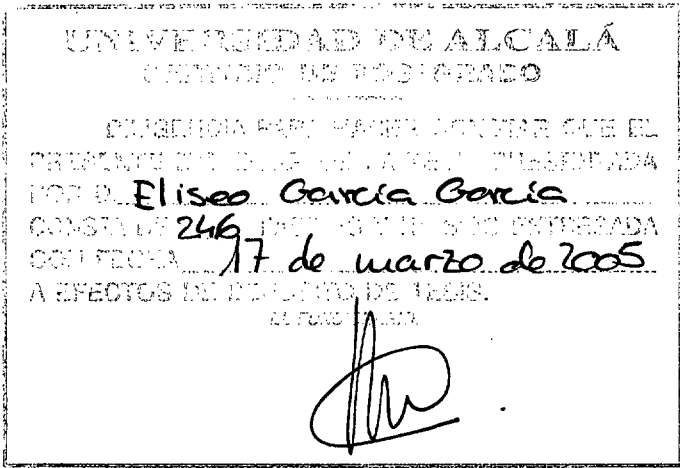 UNIVERSIDAD DE ALCALÁ
DE POSTGRADO
DILIGENCIA PARA HACER CONSTAR QUE EL
PRESENTE
POR D. Eliseo García García
CONSTA DE 246 ENTREGADA
CON FECHA 17 de marzo de 2005
A EFECTOS DE DEPÓSITO DE TESIS.